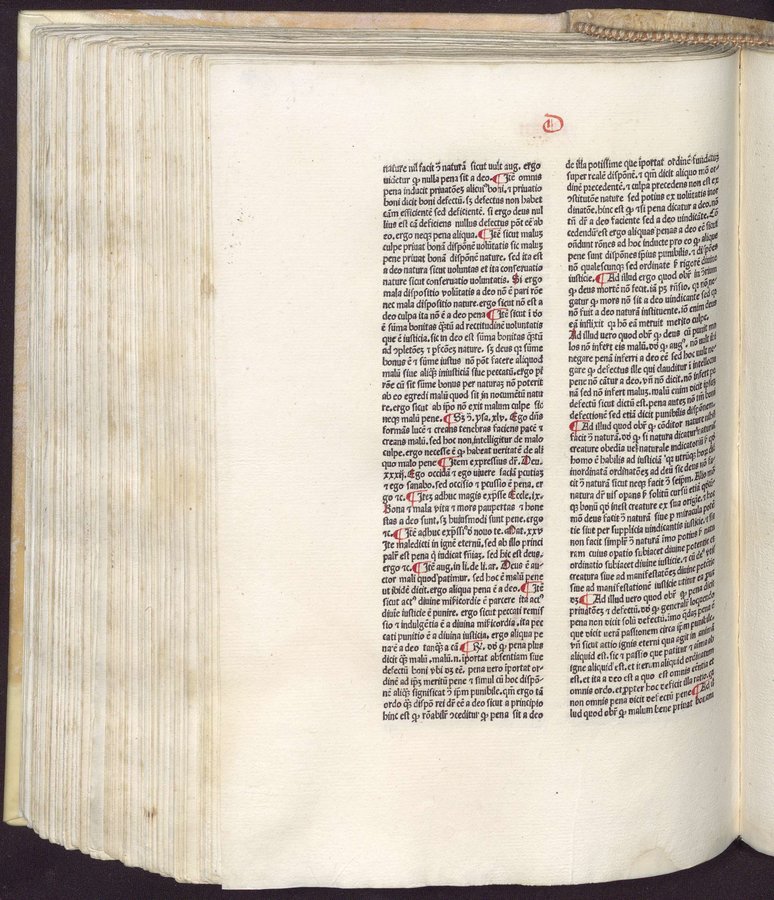 nature nil facit ꝯ naturā sicut vult aug. ergo
videtur ꝙ nulla pena sit a deo. ¶ Itē omnis
pena inducit priuationeȝ alicuiꝰ boni, ⁊ priuatio
boni dicit boni defectū. sȝ defectus non habet
cām efficientē sed deficientē. si ergo deus nul
lius est cā deficiens nullus defectus pōt eē ab
eo. ergo neqȝ pena aliqua. ¶ Itē sicut maluȝ
culpe priuat bonū dispōnē volūtatis sic maluȝ
pene priuat bonā dispōnē nature. sed ita est
a deo natura sicut voluntas et ita conseruatio
nature sicut conseruatio voluntatis. Si ergo
mala dispositio volūtatis a deo nō ē pari rōe
nec mala dispositio nature. ergo sicut nō est a
deo culpa ita nō ē a deo pena ¶ Itē sicut ī deo
ē sūma bonitas q̄tū ad rectitudinē voluntatis
que ē iusticia. sic in deo est sūma bonitas q̄tū
ad ꝯpletōeȝ ⁊ ꝑfctōeȝ nature. sȝ deus qȝ sūme
bonus ē ⁊ sūme iustus nō pōt facere aliquod
malū siue aliqȝ iniusticiā siue peccatū. ergo pī
rōe cū sit sūme bonus per naturaȝ nō poterit
ab eo egredi malū quod sit in nocumētū natu
re. ergo sicut ab ipo nō exit malum culpe sic
neqȝ malū pene. ¶ Sȝ ꝯ. ysa. xlv. Ego dn̄s
formās lucē ⁊ creans tenebras faciens pacē ⁊
creans malū. sed hoc non intelligitur de malo
culpe. ergo necesse ē ꝙ habeat veritatē de ali
quo malo pene ¶ Item expressius dr̄. Deu.
xxxij. Ego occidā ⁊ ego viuere faciā ꝑcutiaȝ
⁊ ego sanabo. sed occisio ⁊ ꝑcussio ē pena. er
go ⁊c. ¶ Iteȝ adhuc magis exp̄sse Eccle. ix.
Bona ⁊ mala vita ⁊ mors paupertas ⁊ hone
stas a deo sunt. sȝ huiusmodi sunt pene. ergo
⁊c. ¶ Itē adhuc exp̄ssiꝰ ꝯ nouo te. Mat. xxv
Ite maledicti in ignē eternū. sed ab illo princi
paliꝰ est pena q̄ indicat sniaȝ. sed hic est deus.
ergo ⁊c. ¶ Itē aug. in li. de li. ar. Deus ē au-
ctor mali quod patimur. sed hoc ē malū pene
ut ibidē dicit. ergo aliqua pena ē a deo. ¶ Itē
sicut actꝰ diuine mi̅icordie ē parcere ita actꝰ
diuie iusticie ē punire. ergo sicut peccati remis
sio ⁊ indulgētia ē a diuina mi̅icordia. ita pec
cati punitio ē a diuina iusticia. ergo aliqua pe
na ē a deo tanq̄ȝ a cā ¶ Rn̄. dd ꝙ pena plus
dicit q̄ȝ malū. malū. n. īportat absentiam siue
defectū boni vbi dȝ eē. pena vero īportat or-
dinē ad ip̄ȝ meritū pene ⁊ simul cū hoc dispōī-
nē aliq̄ȝ significat ī ip̄m punibile. qm̄ ergo tā
ordo q̄ȝ dispō rei dr̄ eē a deo sicut a principio
hinc est ꝙ rōabilr̄ ꝯceditur ꝙ pena sit a deo
de illa potissime que īportat ordinē fundatuȝ
super realē dispōnē. ⁊ qm̄ dicit aliquo mō or-
dinē precedentē. ⁊ culpa precedens non est ex
ꝯstitutōe nature sed potius ex volūtatis inor
dinatōe. hinc est ꝙ ⁊si pena dicatur a deo. nō
tn̄ dr̄ a deo faciente sed a deo vindicāte. Cō
cedendū est ergo aliquas penas a deo eē. si
ondūt rōnes ad hoc inducte pro eo ꝙ aliquȝ
pene sunt dispōnes ipsius punibilis. ⁊ dispōes
nō qualescunqȝ sed ordinate ꝑ rigorē diuine
iusticie. ¶ Ad illud ergo quod obiꝰ in ꝯrium
ꝙ deus mortē nō fecit. iā pȝ rn̄sio. qȝ nō ne-
gatur ꝙ mors nō sit a deo vindicante sed qȝ
nō fuit a deo naturā instituente. iō enim deus
eā inflixit qȝ hō eā meruit merito culpe.
Ad illud vero quod obiꝰ ꝙ deus cū punit ma
los nō infert eis malū. dd ꝙ augꝰ. nō vult ibi
negare penā inferri a deo eē sed hoc vult ne-
gare ꝙ defectus ille qui clauditur ī intellectu
pene nō cātur a deo. vn̄ nō dicit. nō infert pe
nā sed nō infert maluȝ. malū enim dicit ipsuȝ
defectū sicut dictū est. pena autē nō tm̄ boni
defectionē sed etiā dicit punibilis dispōnem.
¶ Ad illud quod obiꝰ ꝙ cōditor nature nihil
facit ꝯ naturā. dd ꝙ si natura dicatur naturaȝ
creature obedia vel naturale indicatoriū ꝑ qd̄
homo ē habilis ad iusticiā
inordinatā ordinatōeȝ ad deū sic deus nō fa-
cit ꝯ naturā sicut neqȝ facit ꝯ seipm̄. Alio mō
natura dr̄ vis
qȝ bonū qd̄ inest creature ex sua origīe. ⁊ hoc
mō deus facit ꝯ naturā siue ꝑ miracula potē
tie siue per supplicia vindicantis iusticie. ⁊ sic
non facit simplr̄ ꝯ naturā īmo potius ꝯ natu
rem cuius opatio subiacet diuine potentie et
ordinatio subiacet diuine iusticie. ⁊ cū deꝰ vtiȝ
creatura siue ad manifestatōeȝ diuine potētie
siue ad manifestatione iusticie vtitur ea pius
dȝ ¶ Ad illud vero quod obiꝰ ꝙ pena dicit
priuatōeȝ ⁊ defectū. dd ꝙ generalr̄ loquendo
pena non dicit solū defectū. īmo quādā pena ē
que dicit verā passionem circa ip̄m punibile.
vn̄ sicut actio ignis eterni qua agit in animā
aliquid est. sic ⁊ passio que patitur ⁊ anima ab
igne aliquid est. et iterum aliquid ordinatum
est. et ita a deo est a quo est omnis entia et
omnis ordo. et ꝓpter hoc deficit illa ratio. qȝ
non omnis pena dicit defectū pene ¶ Ad il
lud quod obiꝰ ꝙ malum bene priuat bonum